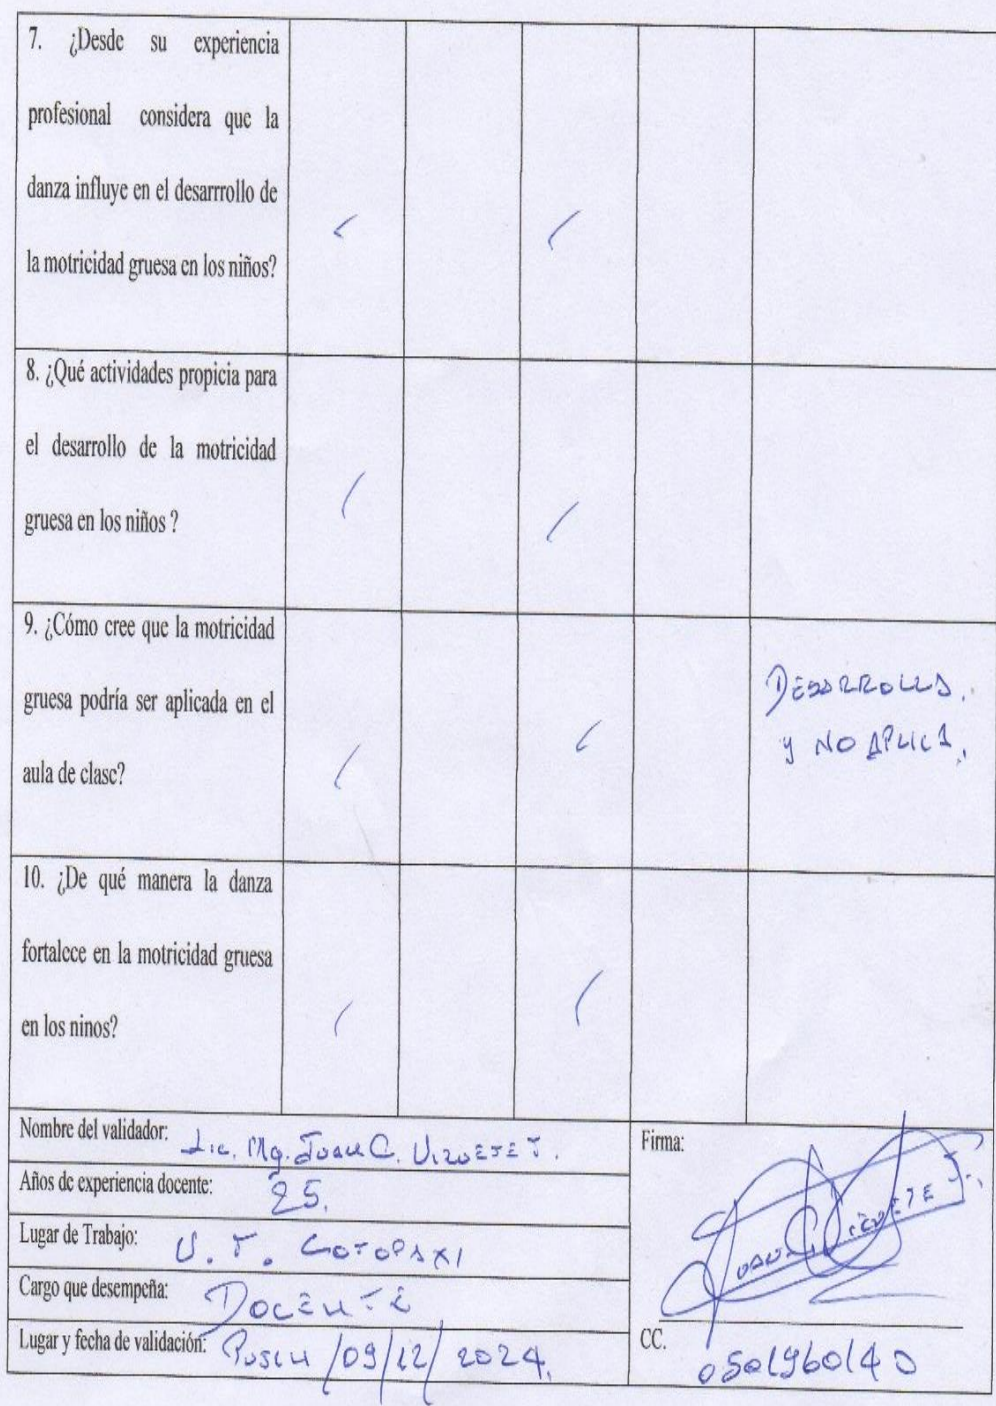 7. ¿Desde su experiencia
profesional considera que la
danza influye en el desarrrollo de
la motricidad gruesa en los niños?
8. ¿Qué actividades propicia para
el desarrollo de la motricidad
gruesa en los niños ?
9. ¿Cómo cree que la motricidad
gruesa podría ser aplicada en el
aula de clase?
DESARROLLA.
y NO APLICA.
10. ¿De qué manera la danza
fortalece en la motricidad gruesa
en los ninos?
Nombre del validador: Lic. Mg. Juan C. Vizuete T.
Años de experiencia docente: 25.
Lugar de Trabajo: U. T. COTOPAXI
Cargo que desempeña: DOCENTE
Lugar y fecha de validación: /09/12/2024.
Firma:
Juan C. Vizuete T.
CC.
0501960140